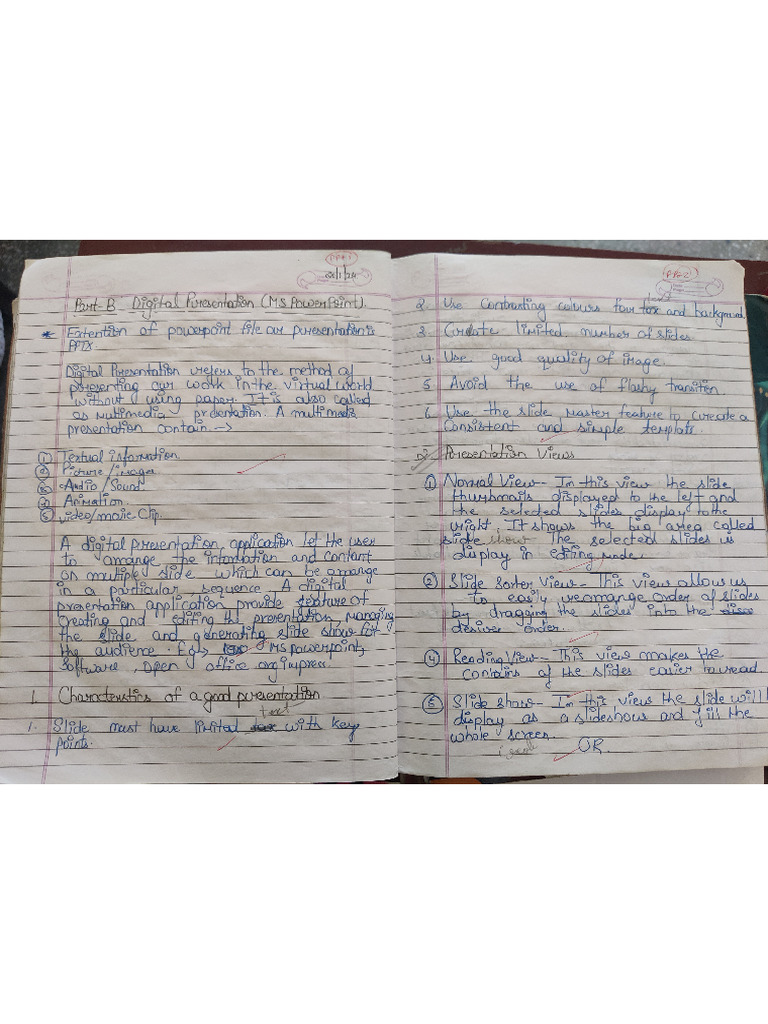 PP-1
Part-B Digital Presentation (MS PowerPoint).
* Extention of powerpoint file our presentation is
PPTX
Digital Presentation refers to the method of
presenting our work in the virtual world
without using paper. It is also called
as multimedia presentation. A multimedia
presentation contain. →
① Textual information
② Picture/images
③ Audio/Sound
④ Animation.
⑤ video/movie Clip.
A digital presentation application let the user
to arrange the information and contant
on multiple slide which can be arrange
in a particular sequence. A digital
presentation application provide feature of
Creating and editing the presentation, managing
the slide and generating slide show for
the audience. Eg, MS powerpoint,
Software, Open office.org impress.
1. Characterstics of a good presentation
text
1. Slide must have limited with key
Points.
PP-2
2. Use contrasting colours four text and background.
3. Create limited number of slides
4. Use good quality of image.
5. Avoid the use of flashy transition.
6. Use the slide master feature to create a
Consistent and simple template.
Presentation Views
① Normal View- In this view the slide
thumbnails displayed to the left and
the selected slides display to the
right. It shows the big area called
slide show. The selected slides is
display in editing mode.
② Slide Sorter View- This view allow us
to easily rearrange order of slides
by dragging the slides into the
desiver order.
④ Reading View- This view makes the
contains of the slides easier to read.
⑤ Slide show- In this view the slide will
display as a slideshow and fill the
whole screen.
OR